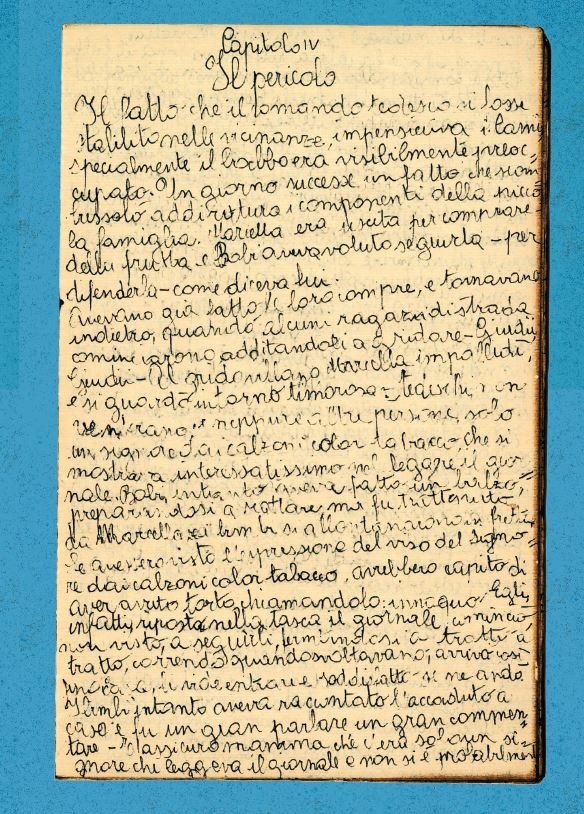 Capitolo IV
Il pericolo
Il fatto che il comando tedesco si fosse
stabilito nelle vicinanze, impensieriva i
specialmente il babbo era visibilmente preoc=
cupato. Un giorno successe un fatto che
addirittura i componenti della picco
la famiglia. Marcella era uscita per comprare
della frutta e Bobi aveva voluto seguirla - per
difenderla - come diceva lui.
Avevano già fatto le loro compre, e tornavano
indietro, quando alcuni ragazzi di strada
cominciarono additandoli a gridare - Giudii,
Giudii - Al grido villano Marcella impallidì,
e si guardò intorno timorosa - tedeschi non
ve n'erano e neppure altre persone, solo
un signore dai calzoni color tabacco, che si
mostrava interessatissimo nel leggere il gior
nale. Bobi intanto aveva fatto un balzo,
preparandosi a lottare, ma fu trattenuto
da Marcella e i bimbi si allontanarono in fretta
Se avessero visto l'espressione del viso del signo=
re dai calzoni color tabacco, avrebbero capito di
aver avuto torto chiamandolo innocuo. Egli,
infatti, riposto nella tasca il giornale, cominciò
non visto, a seguirli, fermandosi a tratti a
tratto, correndo quando svoltavano, arrivò così
li vide entrare e soddisfatto se ne andò
I bimbi intanto aveva raccontato l'accaduto a
casa e fu un gran parlare un gran commen=
tare - rassicurò mamma che c'era solo un si=
gnore che leggeva il giornale e non si è probabilmente